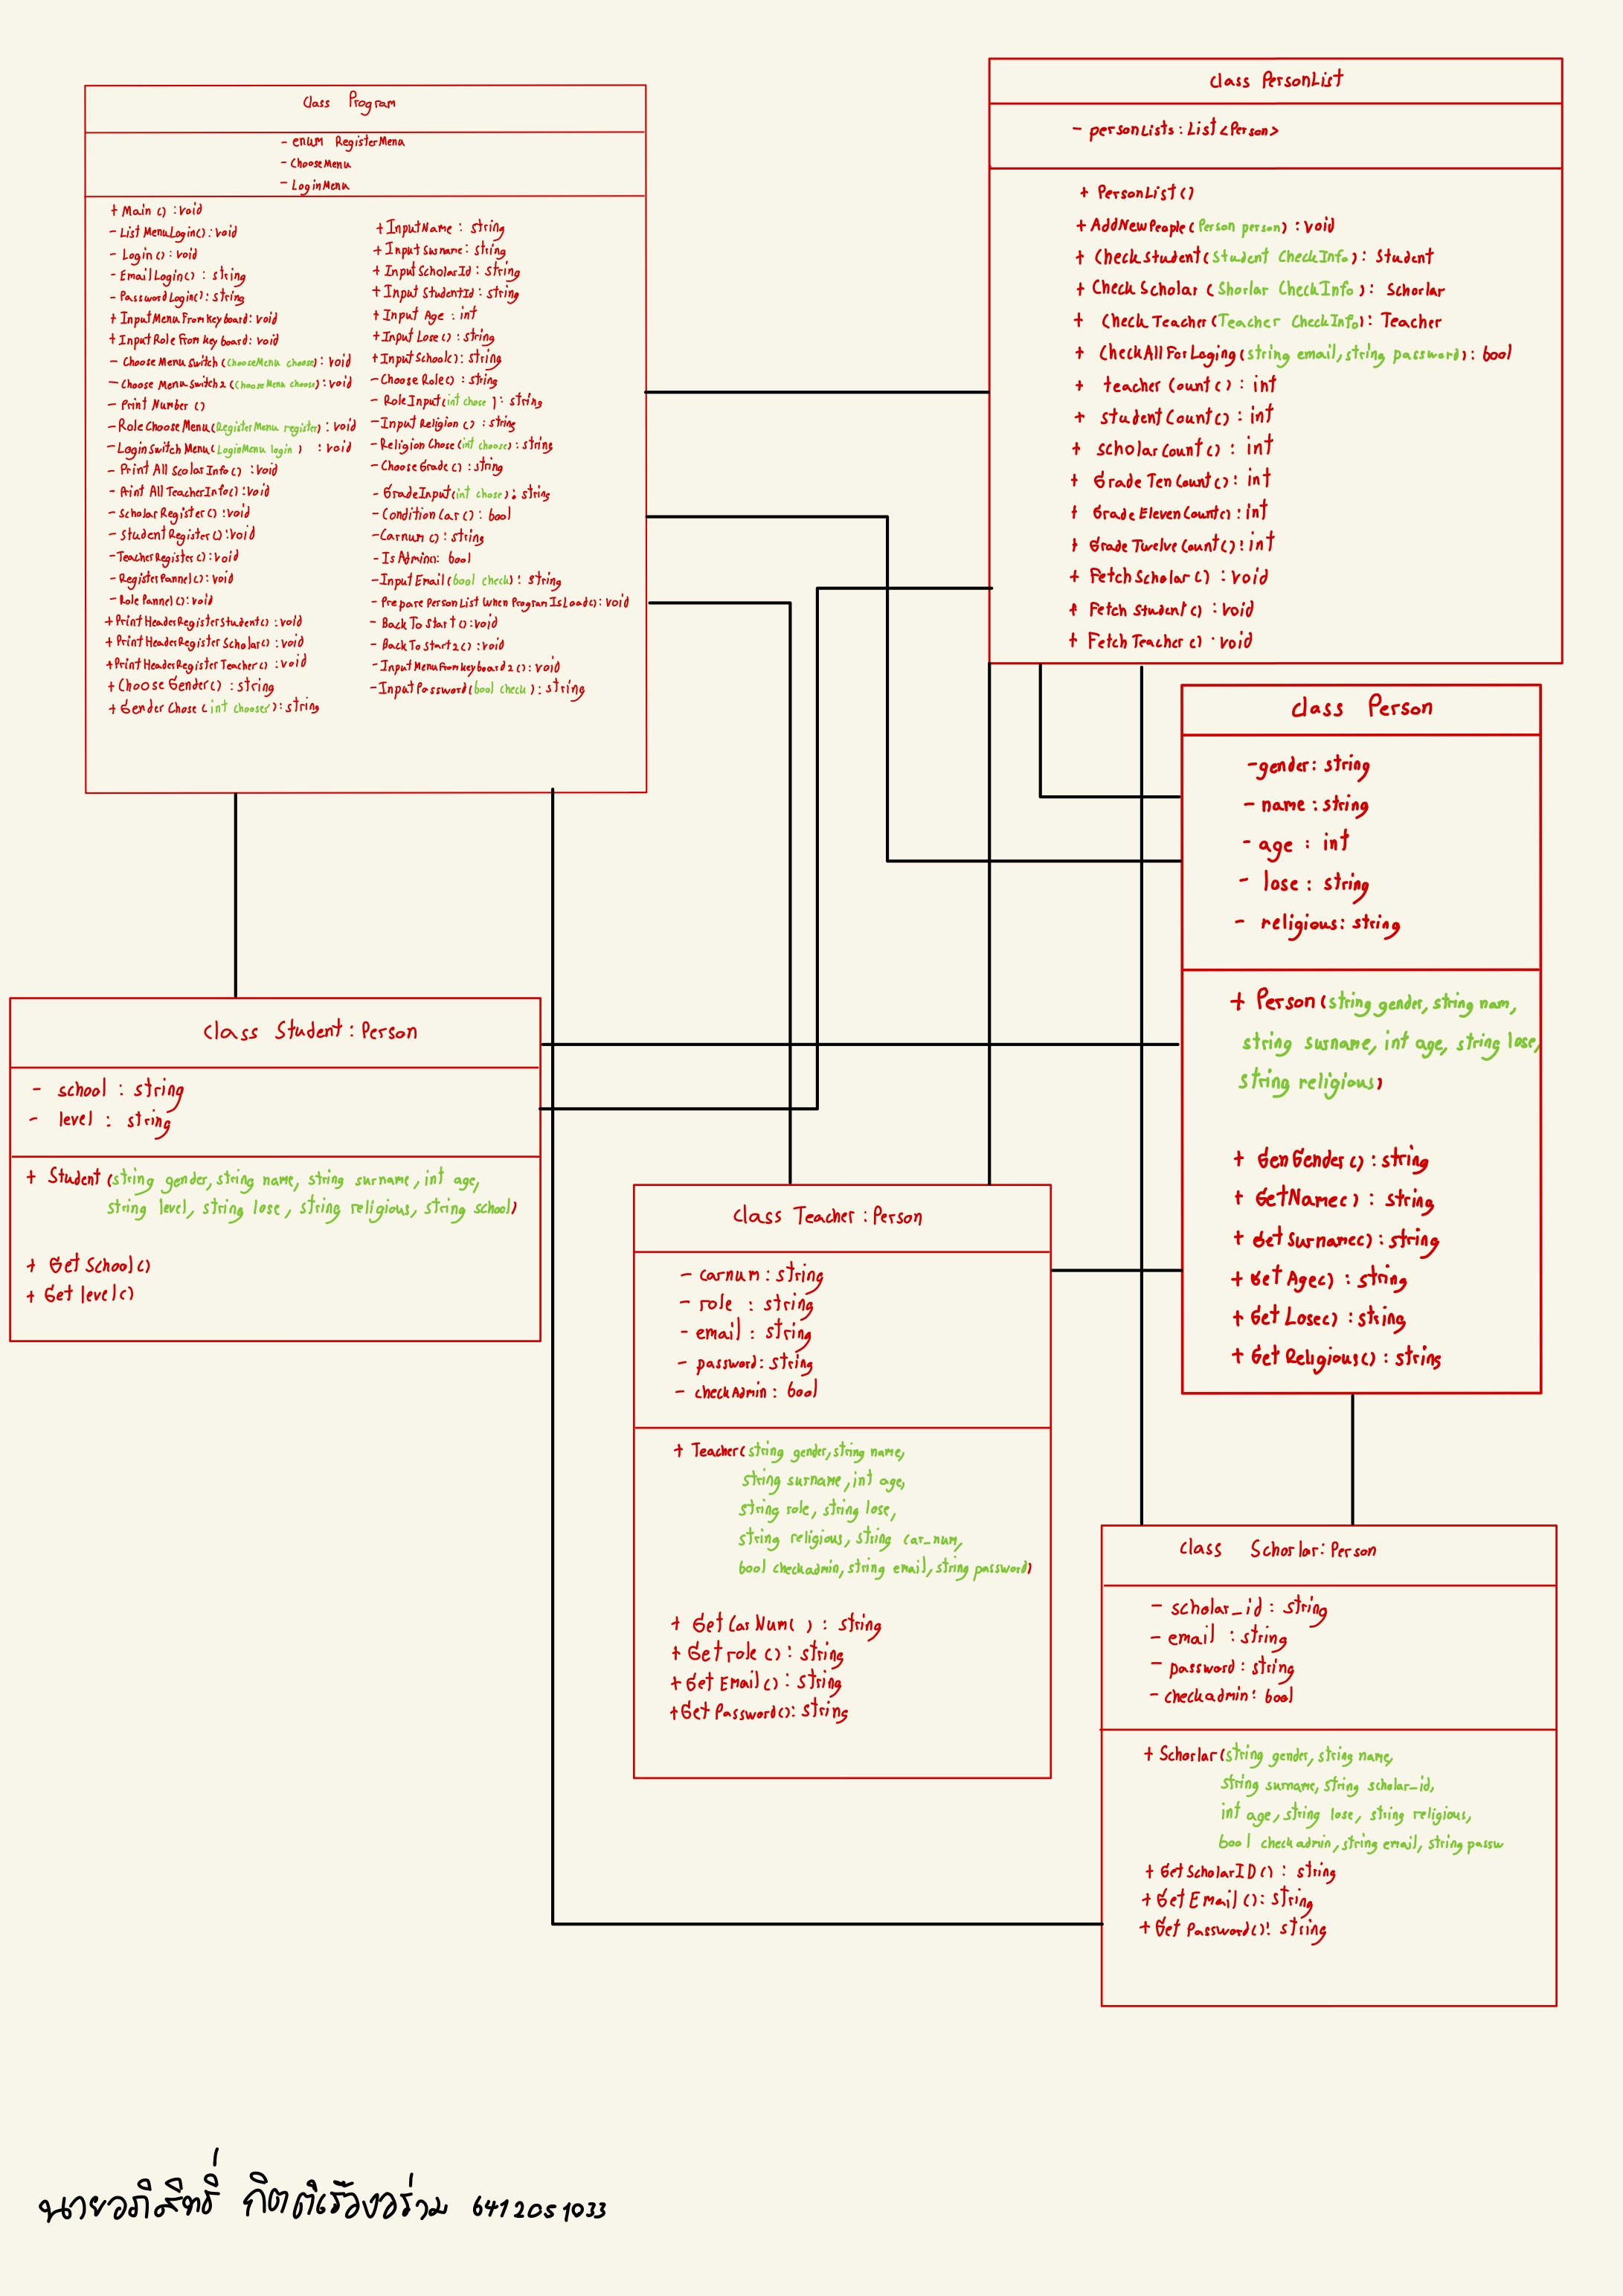 Class Program
- enum RegisterMenu
- ChooseMenu
- LoginMenu
+ Main () : void
- List MenuLogin() : void
- Login () : void
- EmailLogin() : string
- PasswordLogin() : string
+ InputMenuFromkeyboard : void
+ InputRoleFromkeyboard : void
- ChooseMenuSwitch (ChooseMenu choose) : void
- Choose MenuSwitch2 (ChooseMenu choose) : void
- Print Number ()
- RoleChooseMenu(RegisterMenu register) : void
- LoginSwitchMenu(LoginMenu login ) : void
- Print All ScolarInfo() : void
- Print All TeacherInfo() : void
- ScholarRegister() : void
- StudentRegister() : void
- TeacherRegister() : void
- RegisterPannel() : void
- RolePannel() : void
+ PrintHeaderRegisterStudent() : void
+ PrintHeaderRegister Scholar() : void
+ PrintHeaderRegister Teacher() : void
+ Choose Gender() : string
+ Gender Chose (int chooser) : string
+ InputName : string
+ Input Surname : string
+ InputScholarId : string
+ Input StudentId : string
+ Input Age : int
+ Input Lose() : string
+ Input School() : string
- Choose Role() : string
- RoleInput(int chose ) : string
- Input Religion () : string
- Religion Chose (int choose) : string
- Choose Grade() : string
- GradeInput(int chose) : string
- Condition Car() : bool
- Carnum () : string
- Is Admin() : bool
- InputEmail (bool check) : string
- Prepare PersonList When ProgramIsLoad() : void
- Back To Start () : void
- Back To Start2 () : void
- InputMenuFromkeyboard2 () : void
- InputPassword (bool check) : string
class PersonList
- personLists : List <Person>
+ PersonList ()
+ AddNewPeople (Person person) : void
+ Checkstudent (Student CheckInfo) : Student
+ CheckScholar (Shorlar CheckInfo ) : Schorlar
+ Check Teacher (Teacher CheckInfo) : Teacher
+ CheckAllForLoging (string email, string password) : bool
+ teacher Count () : int
+ studentCount () : int
+ scholarCount () : int
+ Grade Ten Count() : int
+ Grade Eleven Count() : int
+ Grade Twelve Count() : int
+ Fetch Scholar () : void
+ Fetch Student () : void
+ Fetch Teacher () : void
class Person
- gender : string
- name : string
- age : int
- lose : string
- religious : string
+ Person (string gender, string nam,
string surname, int age, string lose,
string religious)
+ GenGender () : string
+ GetName() : string
+ Get Surname() : string
+ Get Age() : string
+ Get Lose() : string
+ Get Religious() : string
Class Student : Person
- school : string
- level : string
+ Student (string gender, string name, string surname, int age,
string level, string lose, string religious, string school)
+ Get School ()
+ Get level ()
Class Teacher : Person
- carnum : string
- role : string
- email : string
- password : string
- checkAdmin : bool
+ Teacher( string gender, string name,
string surname, int age,
string role, string lose,
string religious, string car_num,
bool checkadmin, string email, string password)
+ Get Car Num( ) : string
+ Get role () : string
+ Get Email() : string
+ Get Password() : string
class Schorlar : Person
- scholar_id : string
- email : string
- password : string
- checkadmin : bool
+ Schorlar (string gender, string name,
string surname, string scholar_id,
int age, string lose, string religious,
bool checkadmin, string email, string passw
+ Get ScholarID () : string
+ Get Email () : string
+ Get Password() : string
นายอภิสิทธิ์ กิตติเรืองอร่าม 6412051033